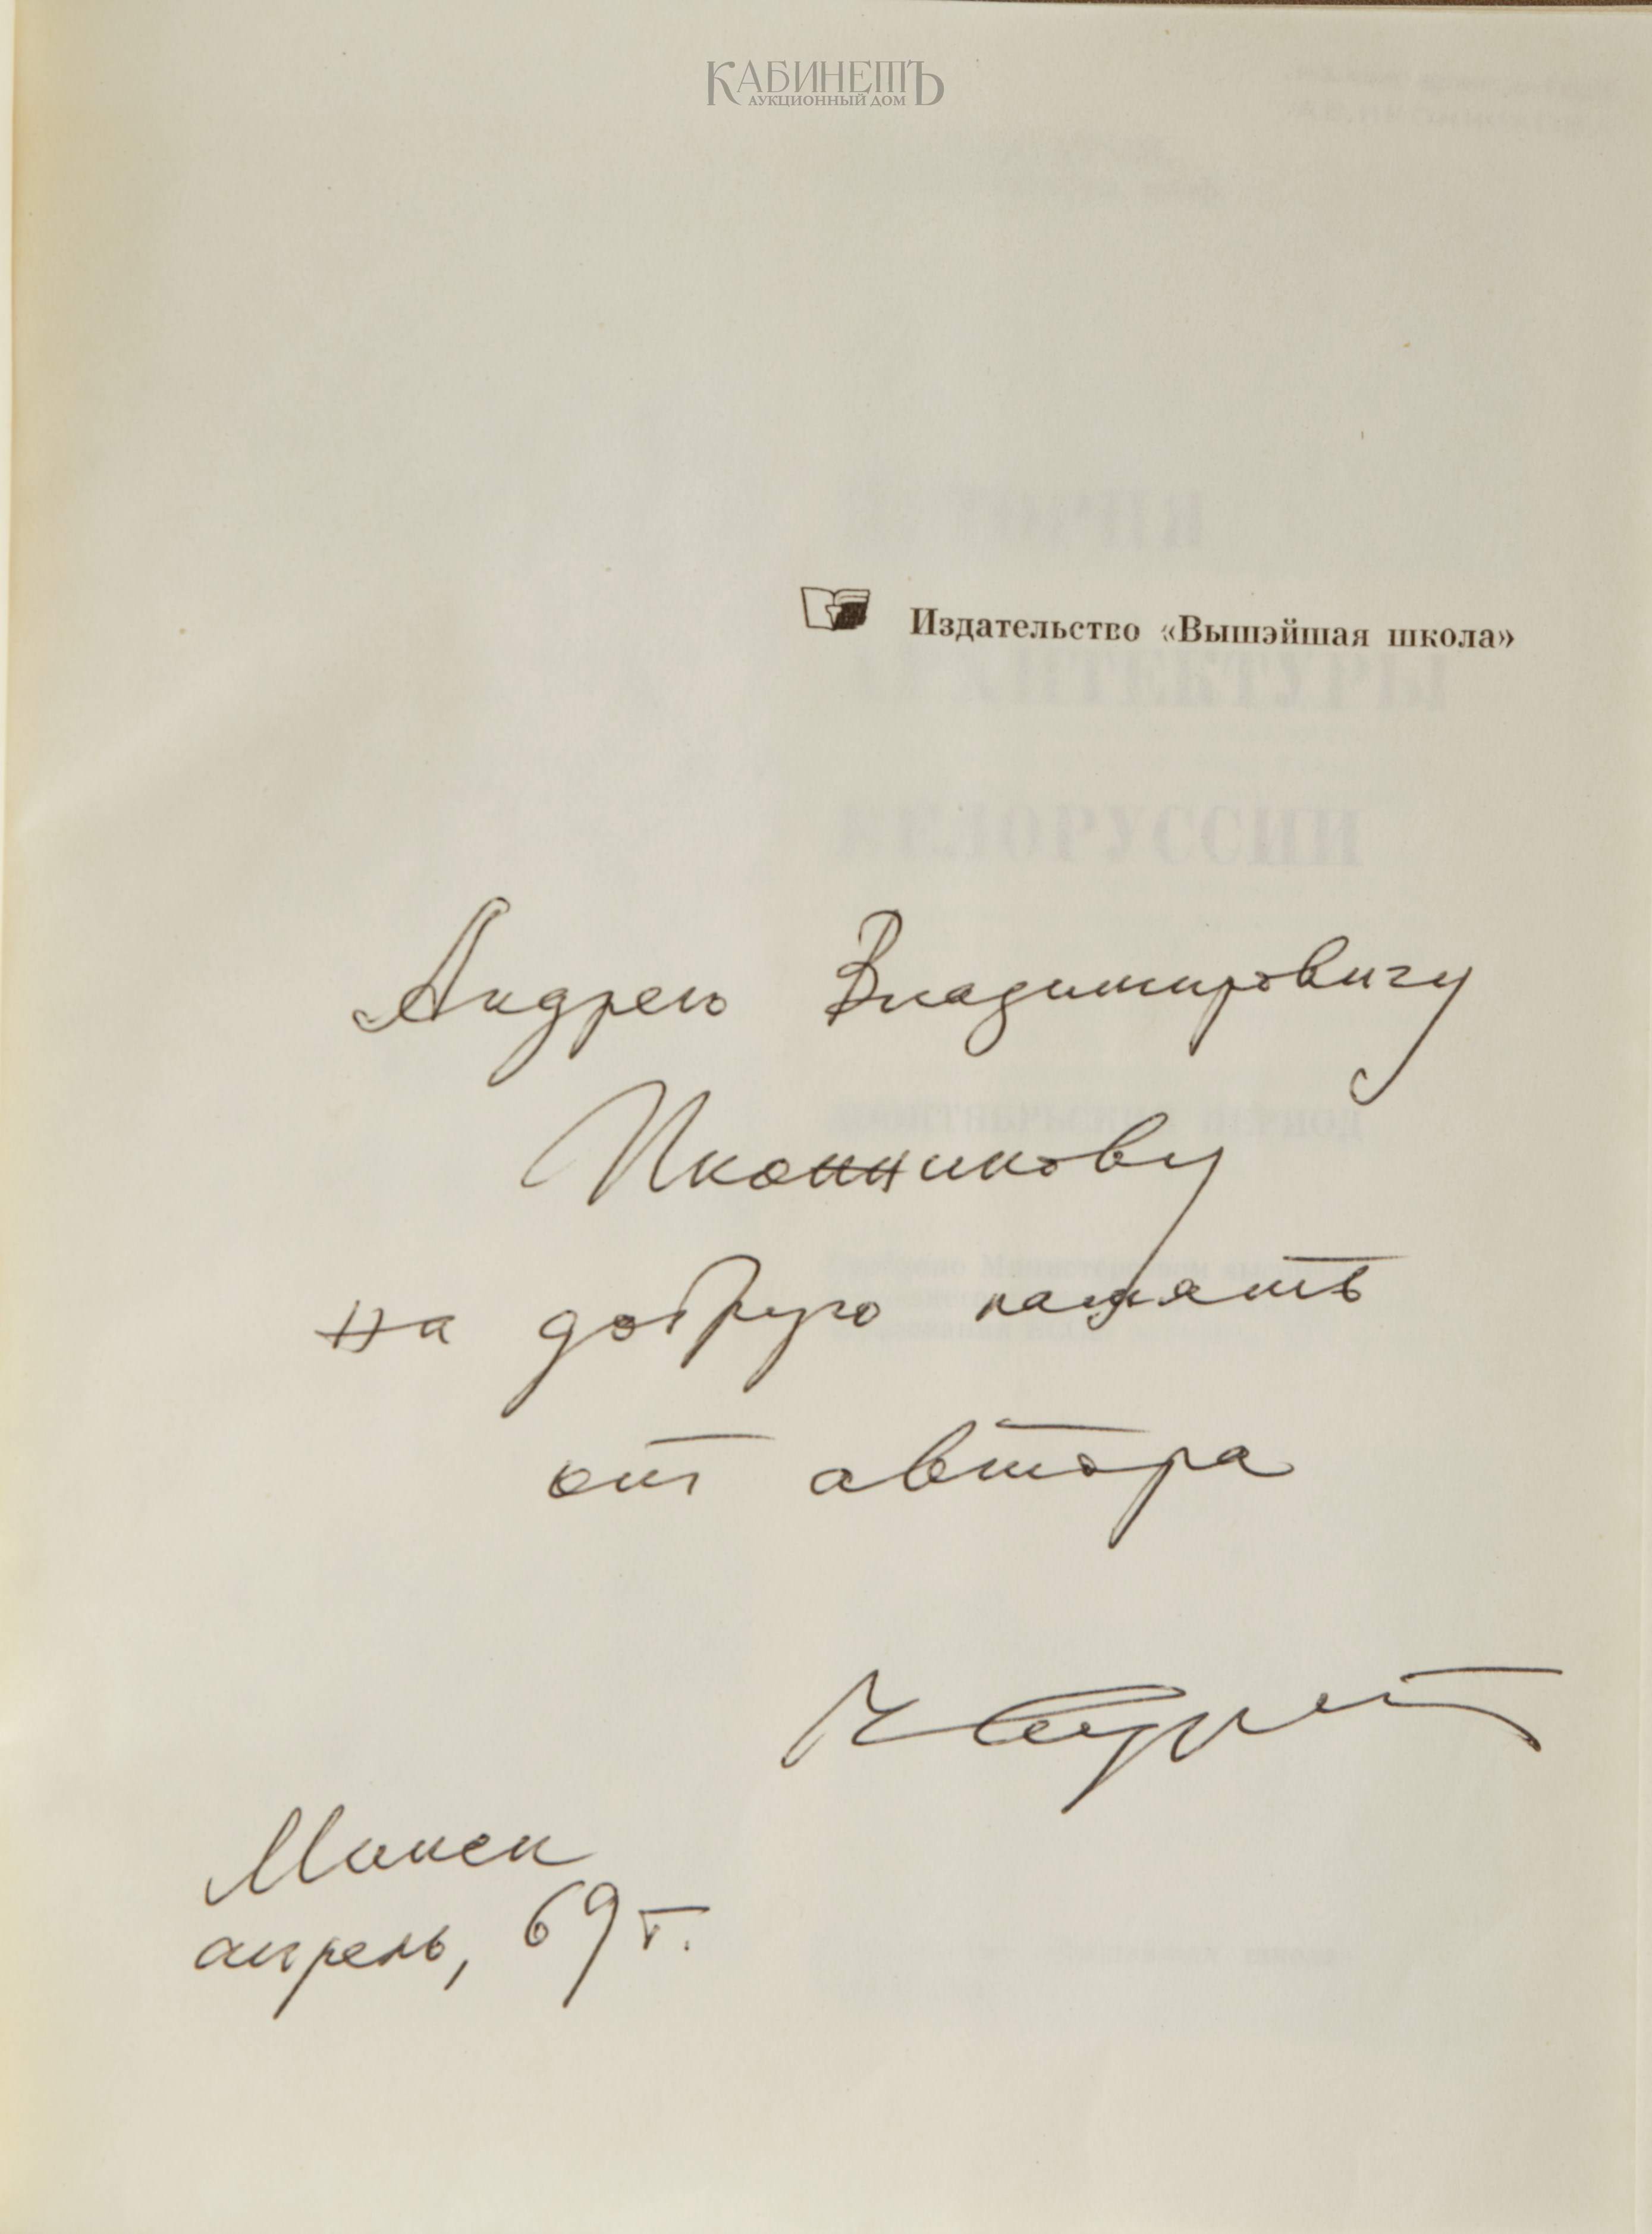 КАБИНЕТЪ
АУКЦИОННЫЙ ДОМ
Издательство «Вышэйшая школа»
Андрею Владимировичу
Иконникову
на добрую память
от автора
Минск
апрель, 69 г.